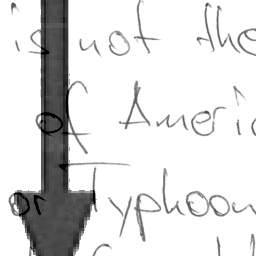 is not the
of Americ
or Typhoon